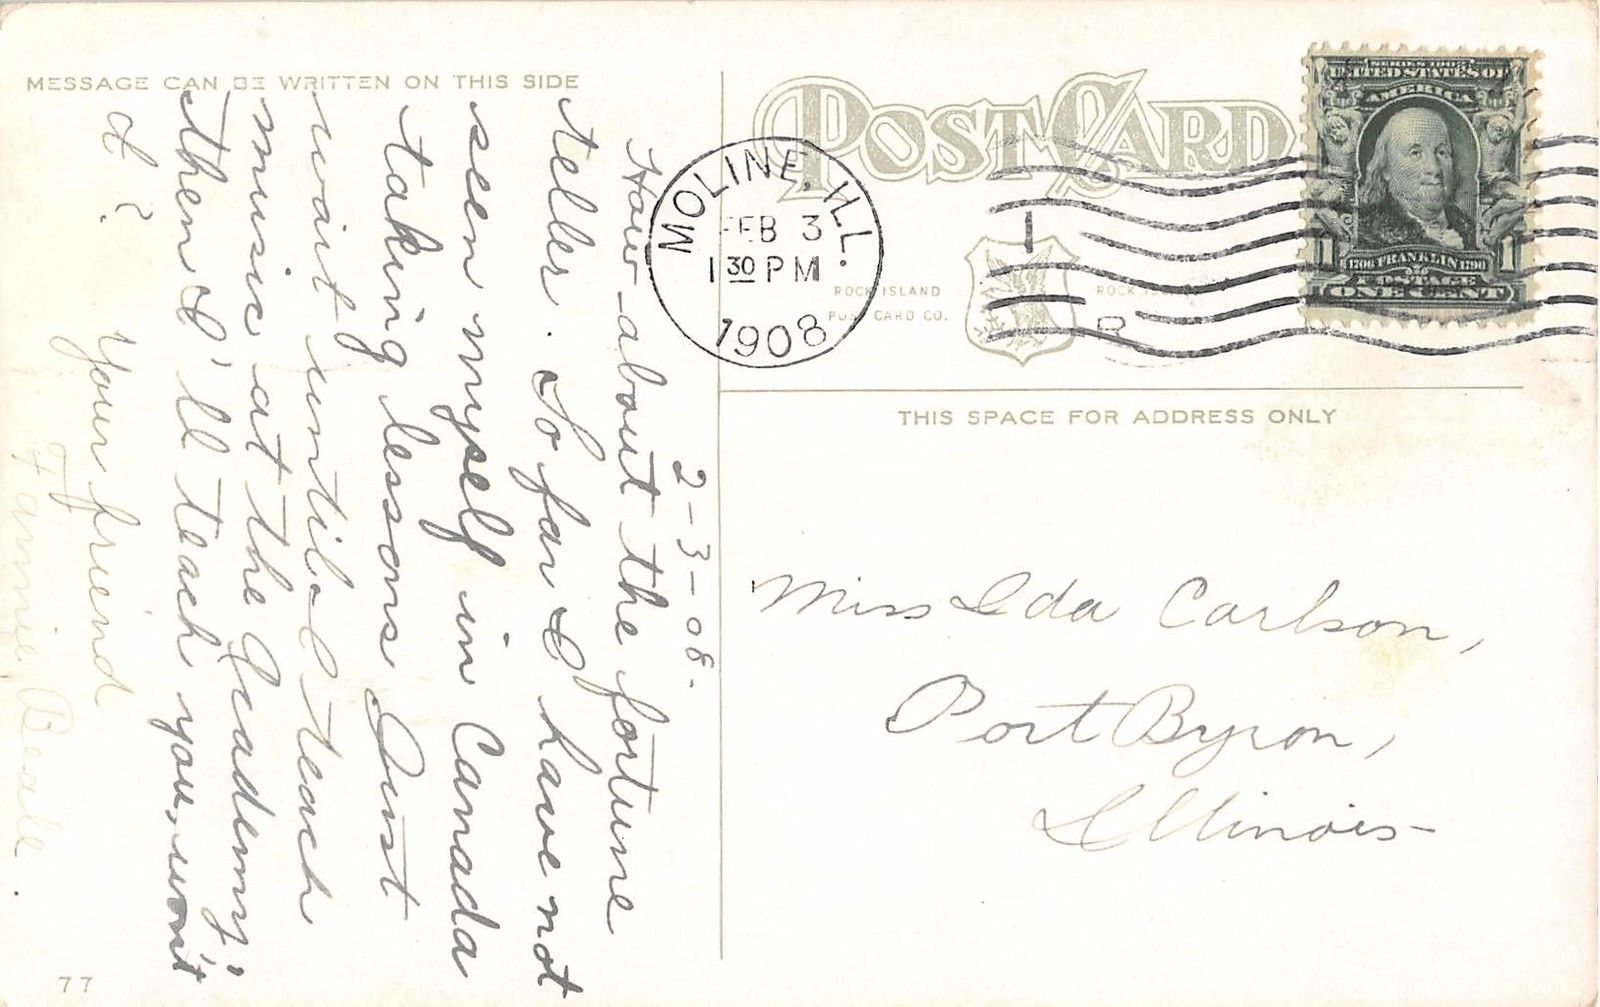 MESSAGE CAN BE WRITTEN ON THIS SIDE
POST CARD
SERIES 1902
UNITED STATES OF
AMERICA
1706 FRANKLIN 1790
POSTAGE
1 1
ONE CENT
MOLINE, ILL.
FEB 3
1 30 PM
1908
ROCK ISLAND
POST CARD CO.
ROCK
THIS SPACE FOR ADDRESS ONLY
2-3-08.
How about the fortune
teller. So far I have not
seen myself in Canada
taking lessons Just
wait until I teach
music at the "Academy"
then I'll teach you, won't
I?
Your friend
Fannie Beale.
Miss Ida Carlson,
Port Byron,
Illinois-
77